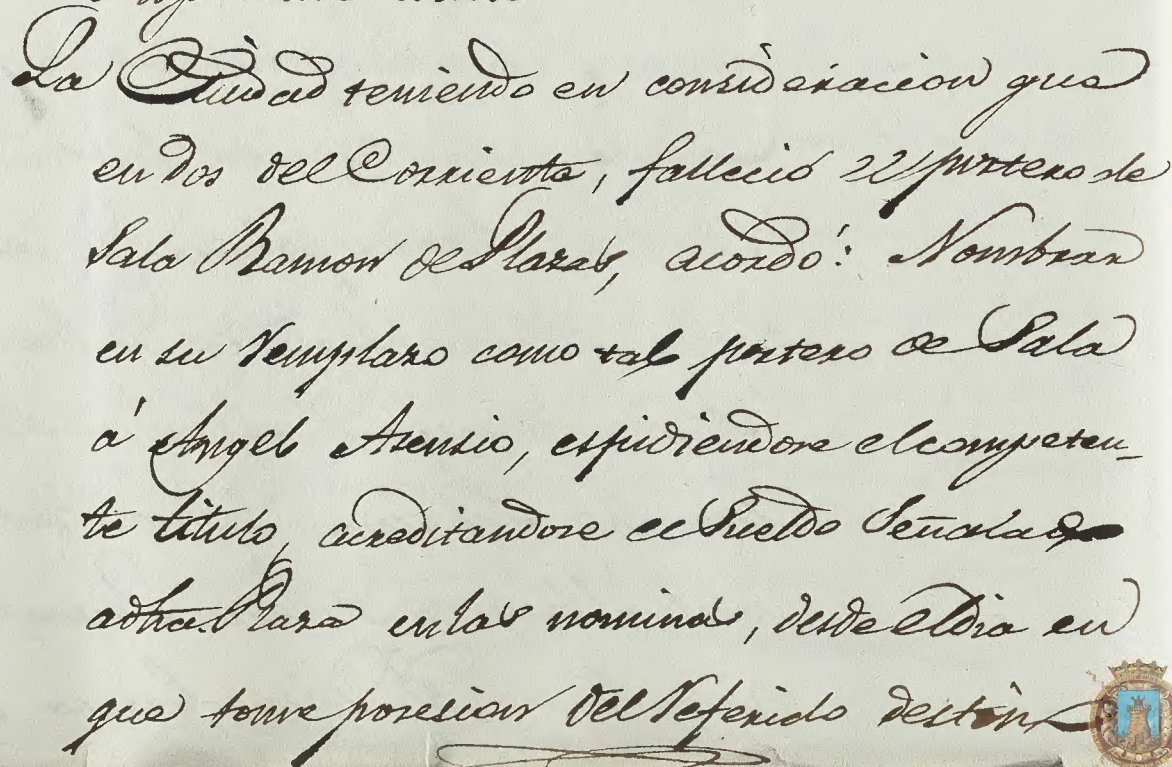 La Ciudad teniendo en consideracion que
en dos del Corriente, falleció el portero de
Sala Ramon de Plazas, acordó: Nombrar
en su remplazo como tal portero de Sala
á Angel Asensio, espidiendose el competen-
te titulo, acreditandose el Sueldo Señalado
adha. Plaza en las nominas, desde el dia en
que tome posesion del referido destino